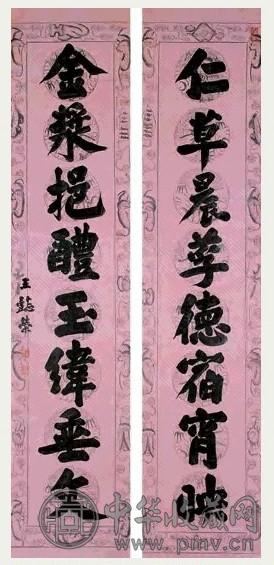 仁草晨莩德宿宵映
金漿挹醴玉緯垂
王懿榮
中华收藏网
www.pmv.cn